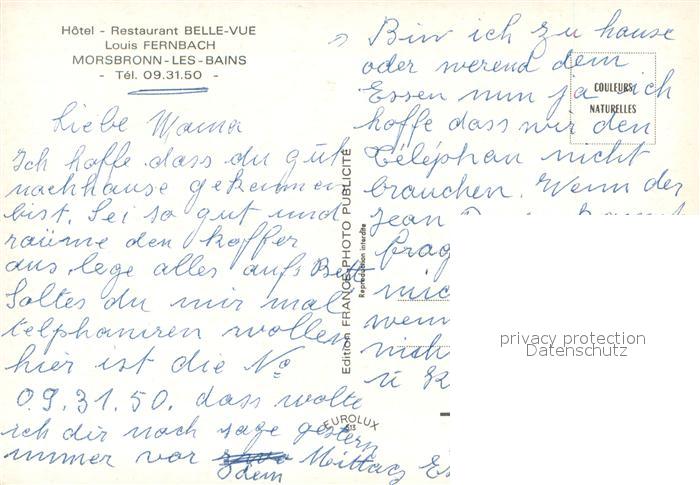 Hôtel - Restaurant BELLE-VUE
Louis FERNBACH
MORSBRONN-LES-BAINS
- Tél. 09.31.50 -
Liebe Mama
Ich hoffe dass du gut
nachhause gekommen
bist. Sei so gut und
raüme den koffer
aus lege alles aufs Bett
Soltes du mir mal
telphaniren wollen
hier ist die No
09.31.50. dass wolte
ich dir noch sage gestern
immer vor
odem Mittag Es
Bin ich zu hause
oder werend dem
Essen nun ja ich
hoffe dass wir den
Téléphan nicht
brauchen. Wenn der
Jean
frag
mic
wenn
nich
u
COULEURS
NATURELLES
Edition FRANCE-PHOTO PUBLICITÉ
Reproduction interdite
EUROLUX
privacy protection
Datenschutz